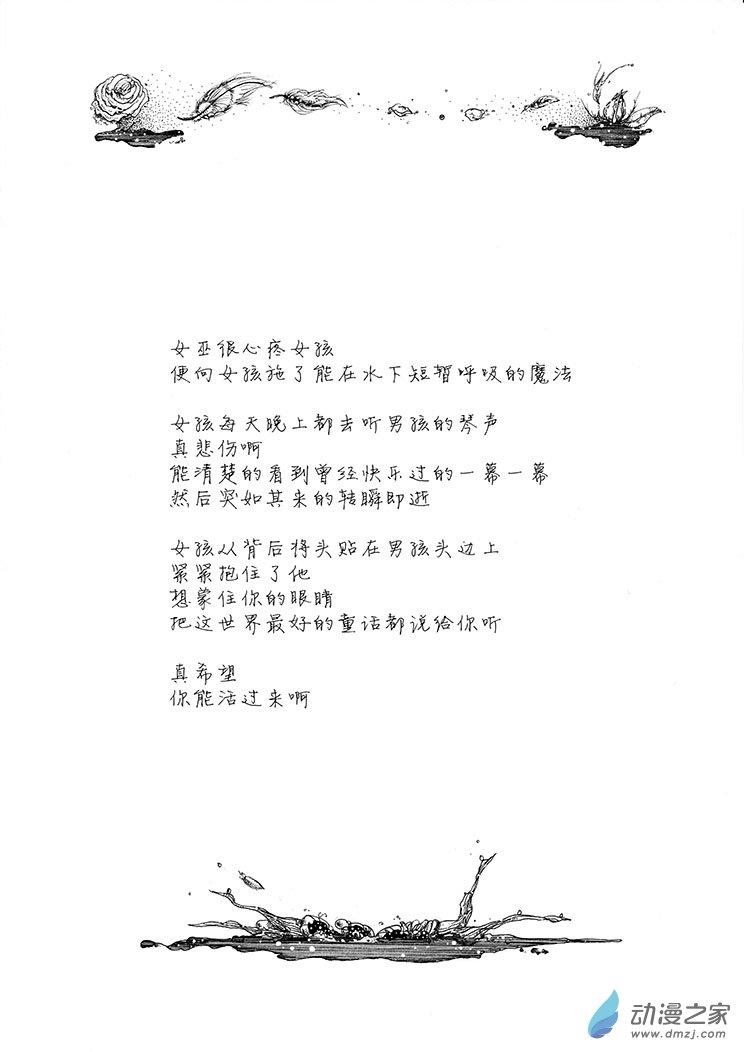 女巫很心疼女孩
便向女孩施了能在水下短暂呼吸的魔法
女孩每天晚上都去听男孩的琴声
真悲伤啊
能清楚的看到曾经快乐过的一幕一幕
然后突如其来的转瞬即逝
女孩从背后将头贴在男孩头边上
紧紧抱住了他
想蒙住你的眼睛
把这世界最好的童话都说给你听
真希望
你能活过来啊
动漫之家
www.dmzj.com